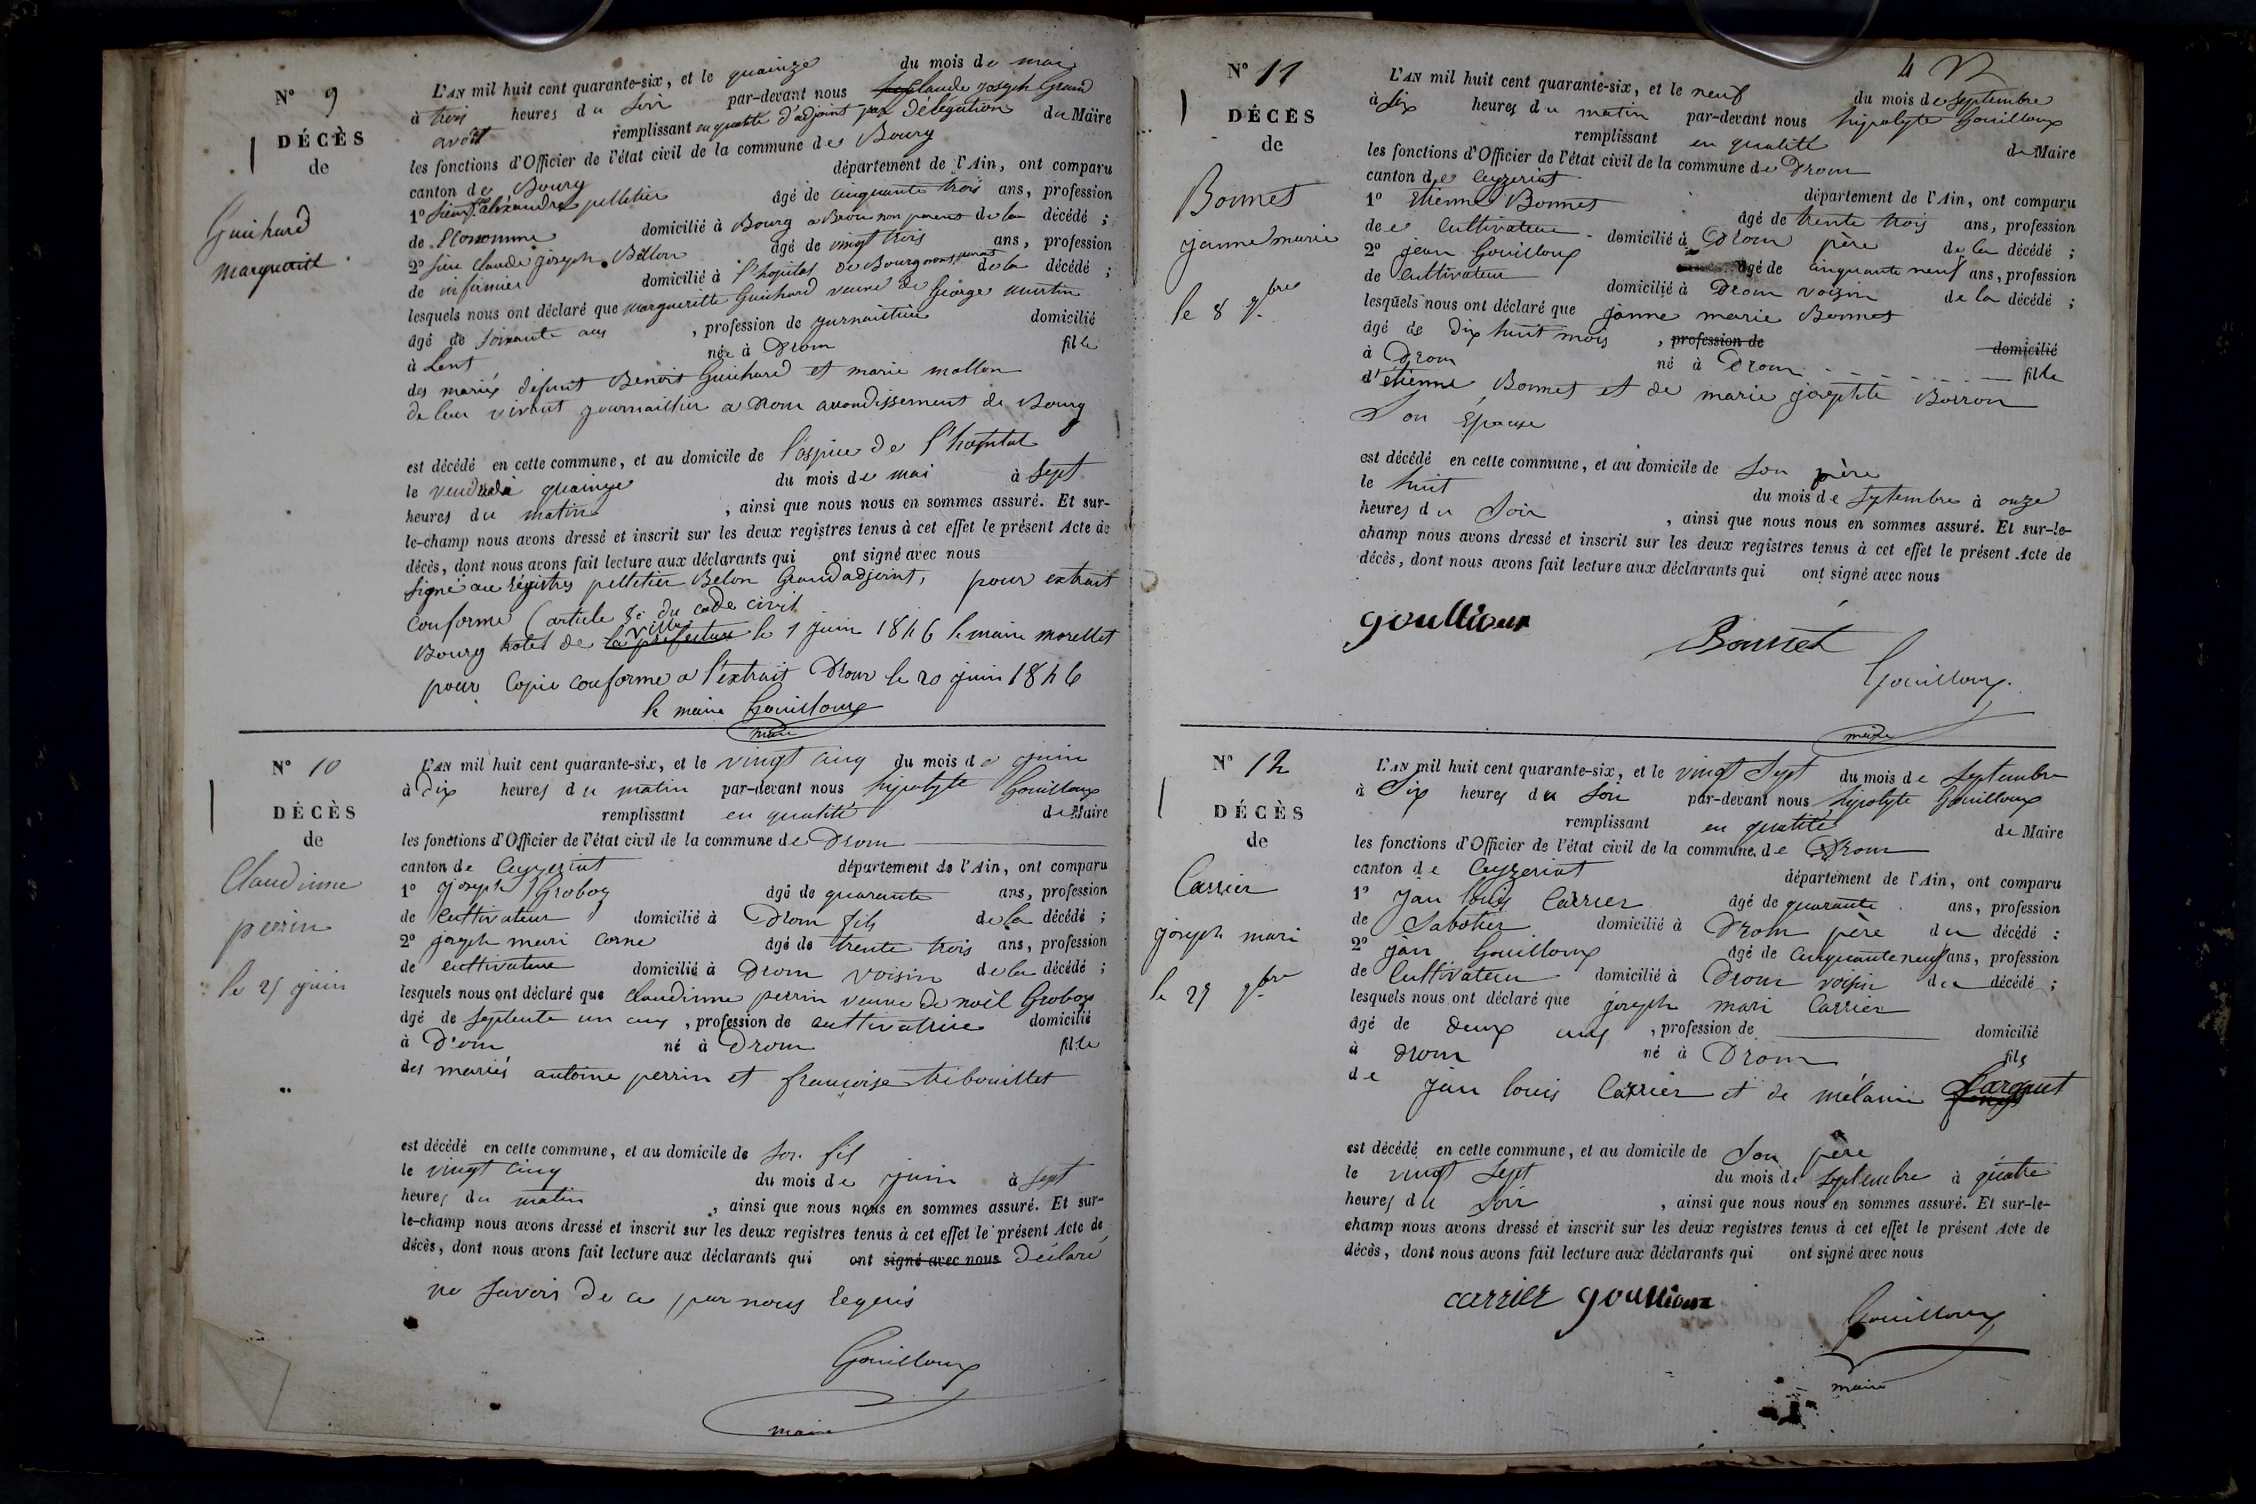 N° 9
DÉCÈS
de
Guichard
marguerite
L'AN mil huit cent quarante-six, et le quainze du mois de mai
à trois heures du soir par-devant nous Claude joseph Grand
avoat remplissant en qualité d'adjoint par délégation du Maire
les fonctions d'Officier de l'état civil de la commune de Bourg
canton de Bourg département de l'Ain, ont comparu
1° Sieur alexandre pelletier âgé de cinquante trois ans, profession
de Econome domicilié à Bourg a Brou non parent de la décédé ;
2° Sieur Claude joseph Bellon âgé de vingt trois ans, profession
de infirmier domicilié à l'hopital de Bourg non parent de la décédé ;
lesquels nous ont déclaré que marguerite Guichard veuve de George martin
âgé de soixante ans , profession de journaillière domicilié
à Lent née à Drom fille
des mariés défunt Benoit Guichard et marie mallon
de leur vivant journaillier a Drom arrondissement de Bourg
est décédé en cette commune, et au domicile de l'ospice de l'hopital
le vendredi quainze du mois de mai à sept
heures du matin , ainsi que nous nous en sommes assuré. Et sur-
le-champ nous avons dressé et inscrit sur les deux registres tenus à cet effet le présent Acte de
décès, dont nous avons fait lecture aux déclarants qui ont signé avec nous
signé au régistres pelletier Belon Grand adjoint, pour extrait
conforme (article du code civil
Bourg hotel de la préfecture ville le 1 juin 1846 le maire morellet
pour copie conforme a l'extrait Drom le 20 juin 1846
le maire Gouilloux
maire
N° 10
DÉCÈS
de
Claudinne
perrin
le 25 juin
L'AN mil huit cent quarante-six, et le vingt cinq du mois de juin
à dix heures du matin par-devant nous hipolyte Gouilloux
remplissant en qualité de Maire
les fonctions d'Officier de l'état civil de la commune de Drom
canton de Ceyzeriat département de l'Ain, ont comparu
1° joseph Groboz âgé de quarante ans, profession
de cultivateur domicilié à Drom fils de la décédé ;
2° joseph mari Corne âgé de trente trois ans, profession
de cultivateur domicilié à Drom voisin de la décédé ;
lesquels nous ont déclaré que Claudinne perrin veuve de noël Groboz
âgé de septente un ans , profession de cultivatrice domicilié
à Drom né à Drom fille
des mariés antoine perrin et françoise tribouillet
est décédé en cette commune, et au domicile de son fils
le vingt cinq du mois de juin à sept
heures du matin , ainsi que nous nous en sommes assuré. Et sur-
le-champ nous avons dressé et inscrit sur les deux registres tenus à cet effet le présent Acte de
décès, dont nous avons fait lecture aux déclarants qui ont signé avec nous déclaré
ne savoir de ce par nous requis
Gouilloux
maire
4
N° 11
DÉCÈS
de
Bonnet
janne marie
le 8 7bre
L'AN mil huit cent quarante-six, et le neuf du mois de septembre
à six heures du matin par-devant nous hipolyte Gouilloux
remplissant en qualité de Maire
les fonctions d'Officier de l'état civil de la commune de Drom
canton de Ceyzeriat département de l'Ain, ont comparu
1° Etienne Bonnet âgé de trente trois ans, profession
de cultivateur domicilié à Drom père de la décédé ;
2° jean Gouilloux âgé de cinquante neuf ans, profession
de cultivateur domicilié à Drom voisin de la décédé ;
lesquels nous ont déclaré que janne marie Bonnet
âgé de dix huit mois , profession de domicilié
à Drom né à Drom fille
d'étienne Bonnet et de marie josephte Borron
son Epouse
est décédé en cette commune, et au domicile de son père
le huit du mois de septembre à onze
heures du soir , ainsi que nous nous en sommes assuré. Et sur-le-
champ nous avons dressé et inscrit sur les deux registres tenus à cet effet le présent Acte de
décès, dont nous avons fait lecture aux déclarants qui ont signé avec nous
goullioux Bonnet
Gouilloux
maire
N° 12
DÉCÈS
de
Carrier
joseph mari
le 27 7bre
L'AN mil huit cent quarante-six, et le vingt sept du mois de septembre
à six heures du soir par-devant nous hipolyte Gouilloux
remplissant en qualité de Maire
les fonctions d'Officier de l'état civil de la commune de Drom
canton de Ceyzeriat département de l'Ain, ont comparu
1° jean louis Carrier âgé de quarante ans, profession
de sabotier domicilié à Drom père du décédé ;
2° jean Gouilloux âgé de cinquante neuf ans, profession
de cultivateur domicilié à Drom voisin du décédé ;
lesquels nous ont déclaré que joseph mari Carrier
âgé de deux ans , profession de domicilié
à Drom né à Drom fils
de jean louis Carrier et de mélanie
est décédé en cette commune, et au domicile de son père
le vingt sept du mois de septembre à quatre
heures du soir , ainsi que nous nous en sommes assuré. Et sur-le-
champ nous avons dressé et inscrit sur les deux registres tenus à cet effet le présent Acte de
décès, dont nous avons fait lecture aux déclarants qui ont signé avec nous
carrier goullioux Gouilloux
maire